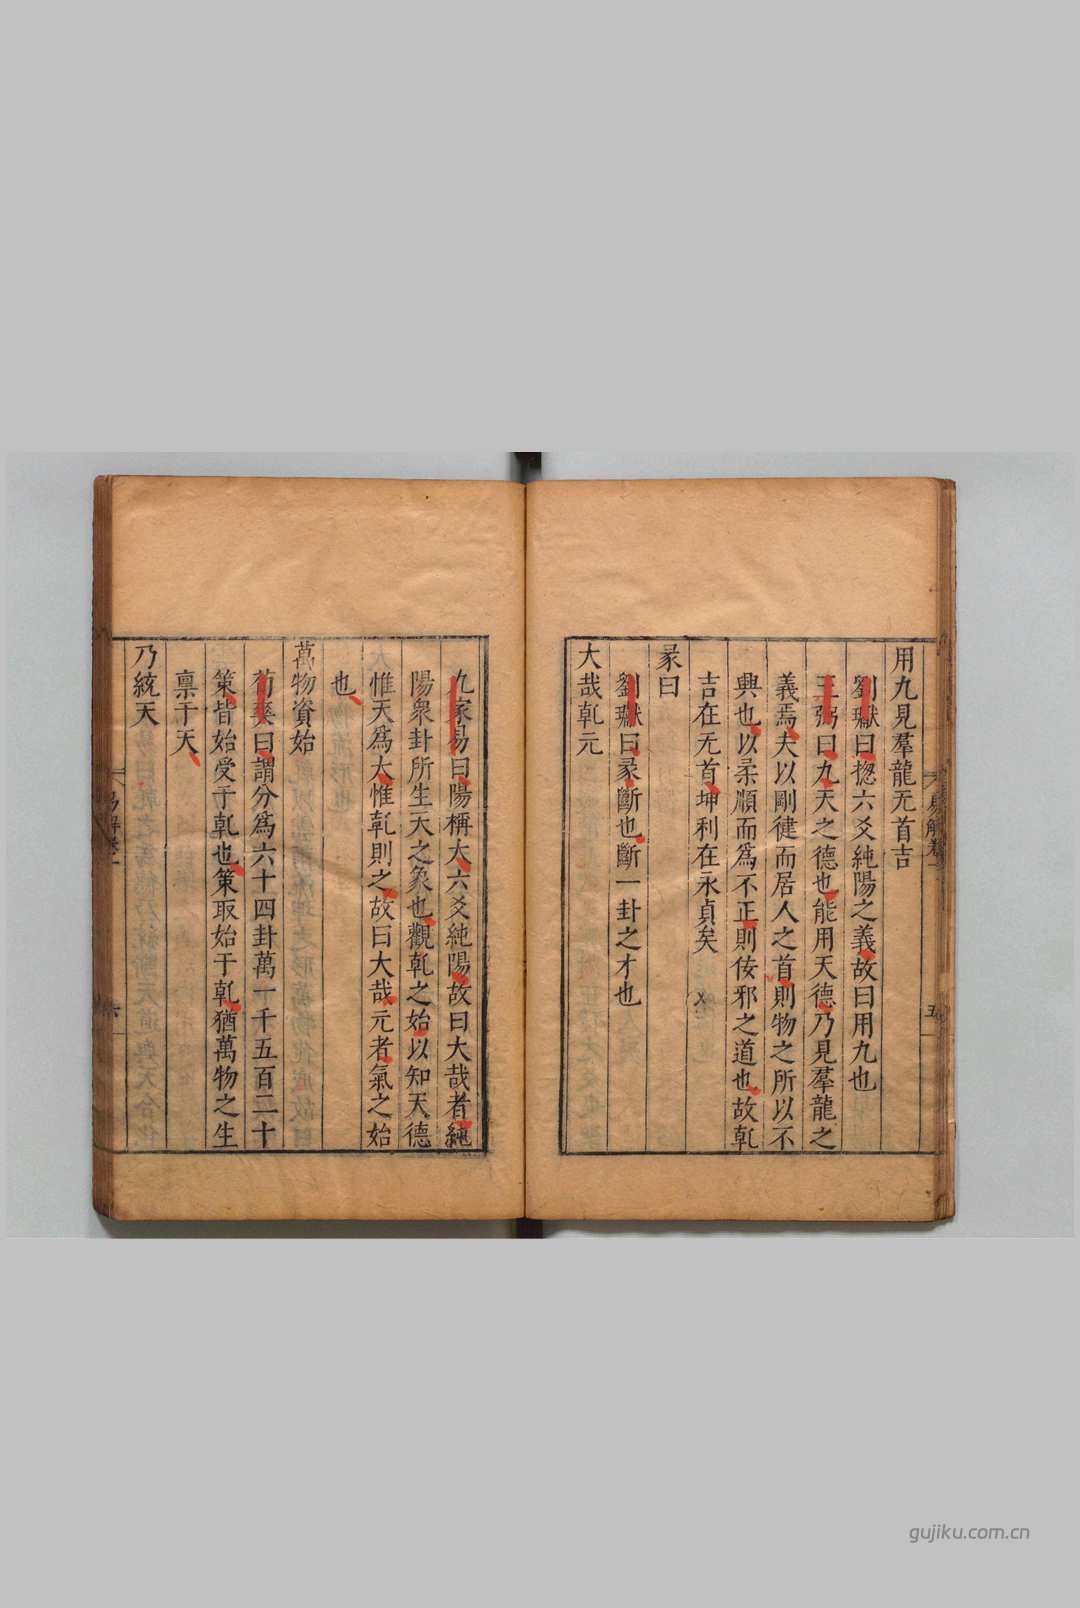 用九見羣龍无首吉
劉瓛曰揔六爻純陽之義故曰用九也
王弼曰九天之德也能用天德乃見羣龍之
義焉夫以剛徤而居人之首則物之所以不
與也以柔順而爲不正則佞邪之道也故乹
吉在无首坤利在永貞矣
彖曰
劉瓛曰彖斷也斷一卦之才也
大哉乹元
九家易曰陽稱大六爻純陽故曰大哉者純
陽衆卦所生天之象也觀乹之始以知天德
惟天爲大惟乹則之故曰大哉元者氣之始
也
萬物資始
荀爽曰謂分爲六十四卦萬一千五百二十
策皆始受于乹也策取始于乹猶萬物之生
稟于天
乃統天
易解卷一
五
易解卷一
六
gujiku.com.cn